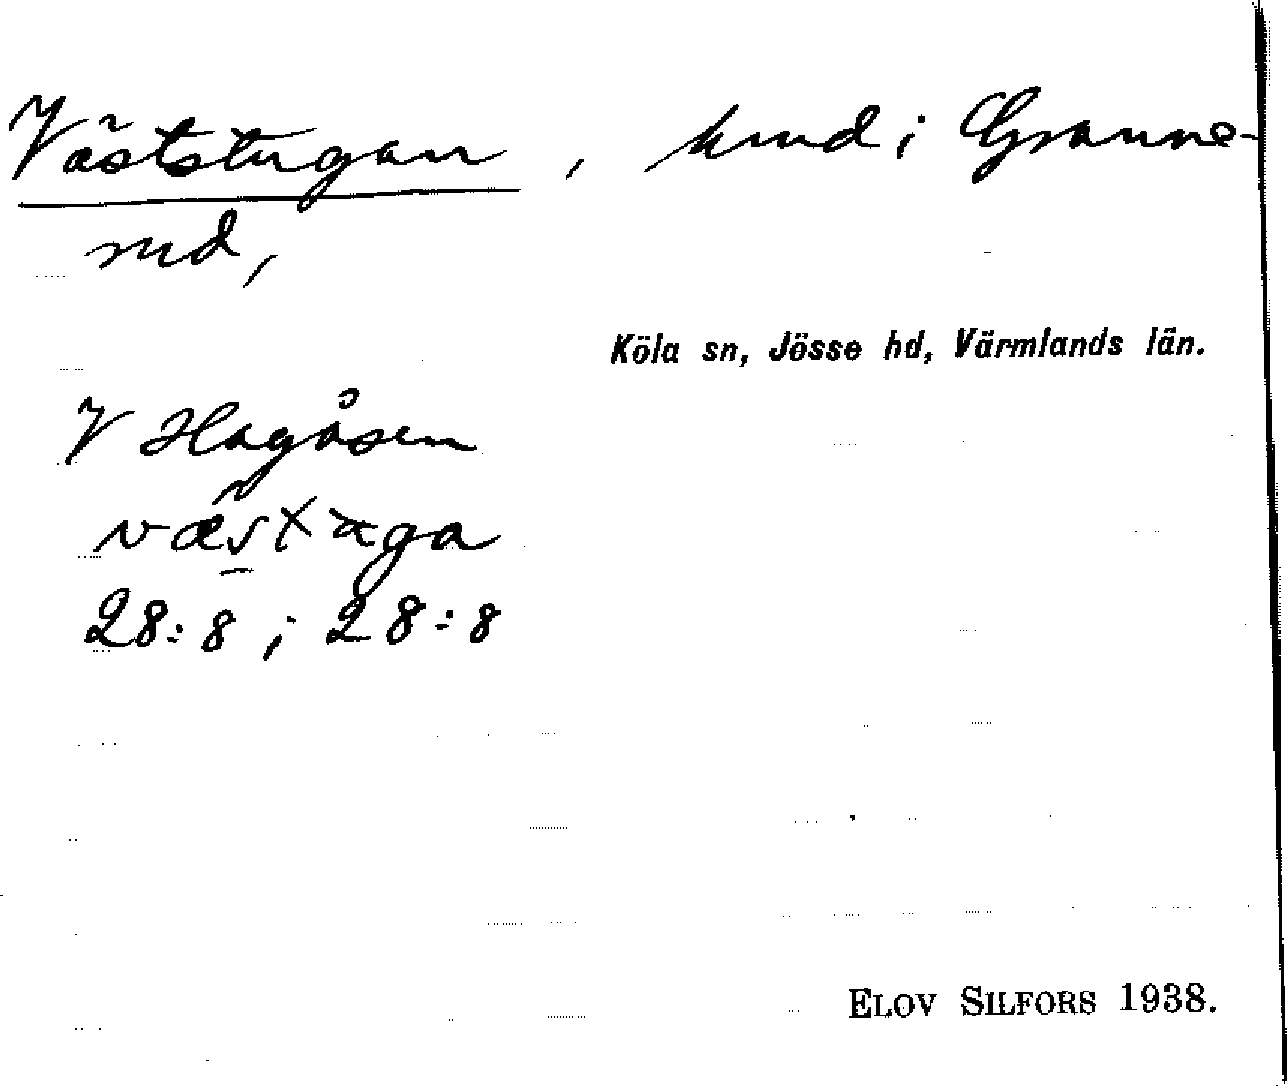 Väststugan, hmd i Granne-
rud,
Köla sn, Jösse hd, Värmlands län.
V Hagåsen
28:8; 28:8
ELOV SILFORS 1938.